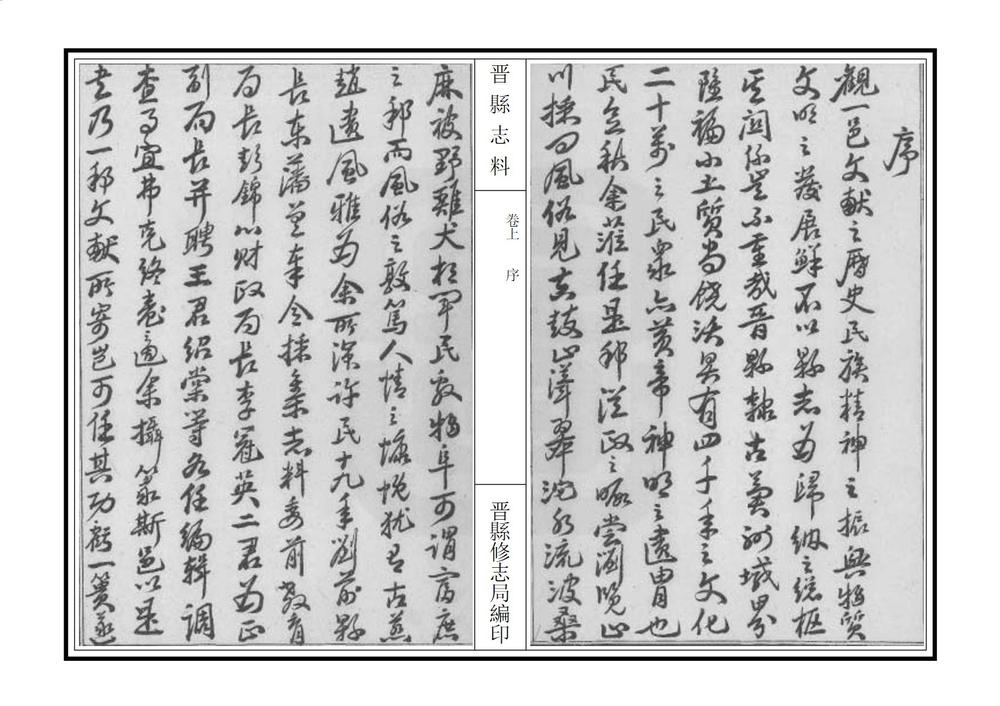 序
觀一邑文獻之歷史民族精神之振興物質
文明之發展鮮不以縣志為歸納之總樞
其關係豈不重哉晉縣隸古冀州域界
雖褊小土質尚饒沃具有四千年之文化
二十萬之民衆亦黃帝神明之遺胄也
民之秋余蒞任是邦從政之暇嘗瀏覽山
川採問風俗見其鼓山澤翠沱水流波桑
晉縣志料
卷上 序
晉縣修志局編印
麻被野雞犬相聞民殷物阜可謂富庶
之邦而風俗之敦篤人情之慷慨猶有古燕
趙遺風雅為余所深許民十九年劉前縣
長東藩曾奉令採集志料委前教育
局長彭錦心財政局長李冠英二君為正
副局長并聘王君紹棠等为任編輯調
查事宜弗克終卷適余攝篆斯邑以是
志乃一邦文獻所寄豈可任其功虧一簣遂